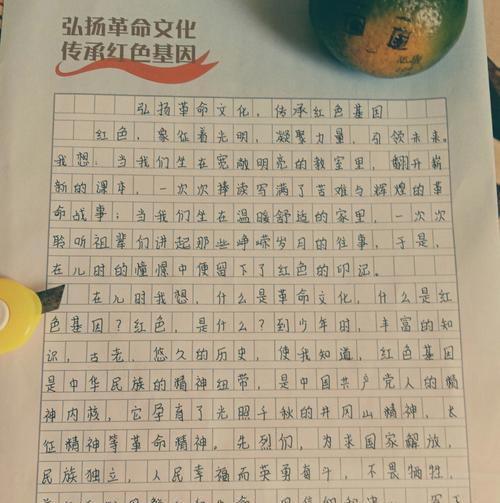 弘扬革命文化
传承红色基因
弘扬革命文化，传承红色基因
红色，象征着光明，凝聚力量，引领未来。
我想：当我们坐在宽敞明亮的教室里，翻开崭
新的课本，一次次捧读写满了苦难与辉煌的革
命战事；当我们坐在温暖舒适的家里，一次次
聆听祖辈们讲起那些峥嵘岁月的往事，于是，
在儿时的憧憬中便留下了红色的印记。
在儿时我想，什么是革命文化，什么是红
色基因？红色，是什么？到少年时，丰富的知
识，古老、悠久的历史，使我知道，红色基因
是中华民族的精神纽带，是中国共产党人的精
神内核，它孕育了光照千秋的井冈山精神，长
征精神等革命精神。先烈们，为求国家解放，
民族独立，人民幸福而英勇奋斗，不畏牺牲，